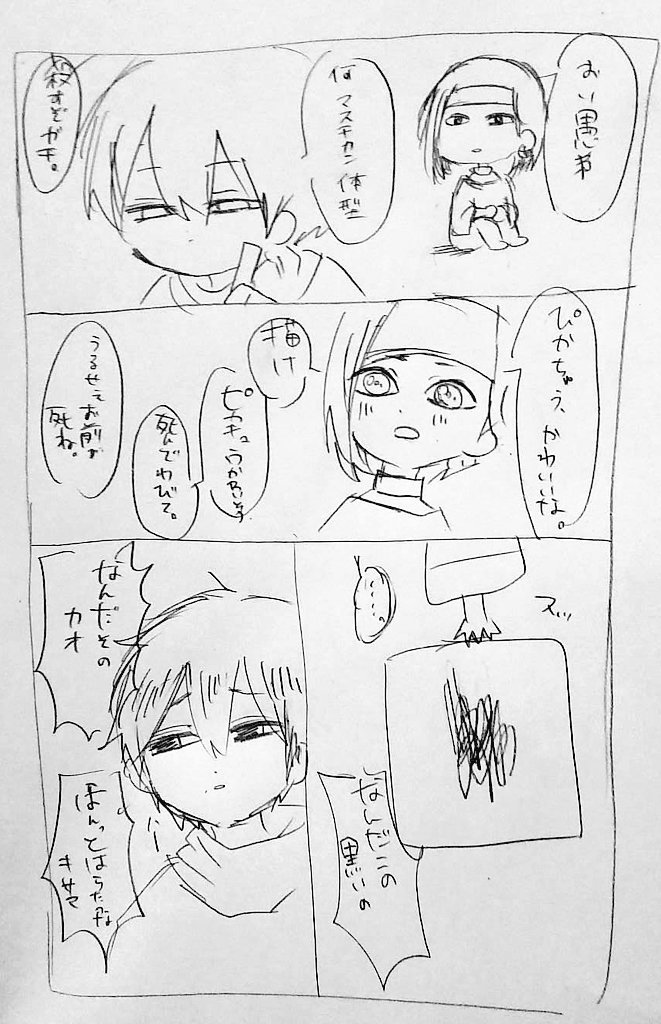 おい愚弟
何マスキカン体型
殺すぞガキ。
ぴかちゅう、かわいいな。
描け
ピカチュウが
死んでわびて。
うるせぇお前が
死ね。
スッ
……。
なんだこの
黒いの
なんだその
カオ
ほんっとはらたつな
キサマ